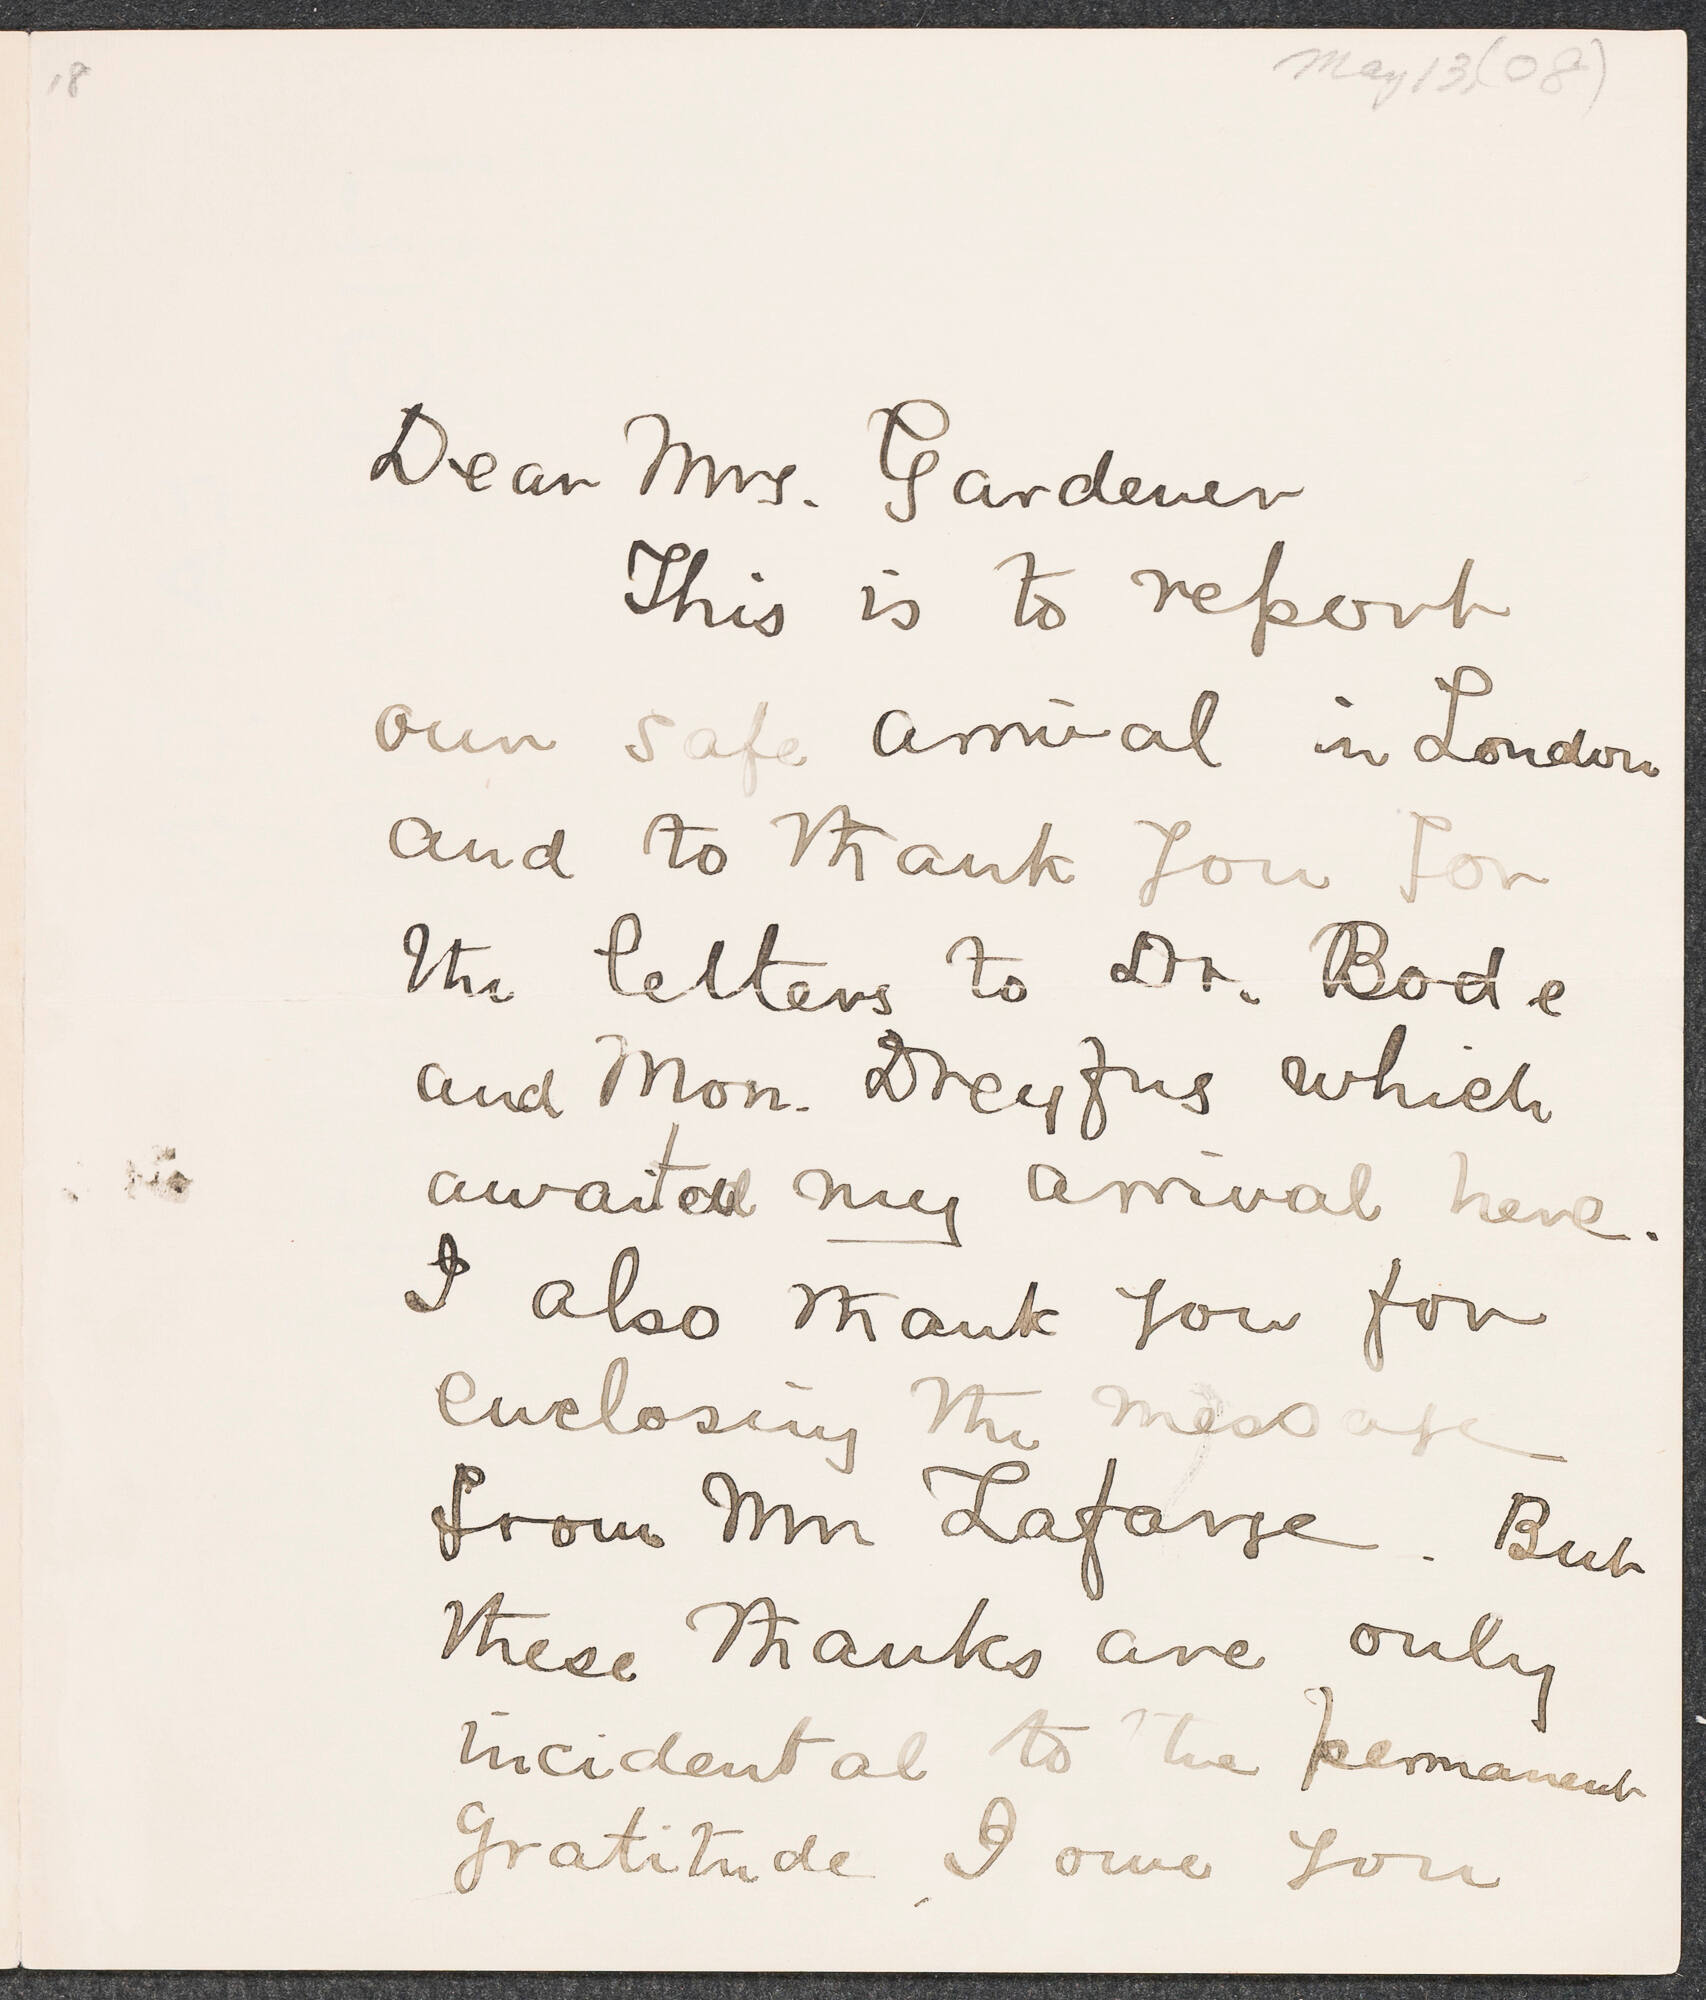 18
May 13, (08)
Dear Mrs. Gardener
This is to report
our safe arrival in London
and to thank you for
the letters to Dr. Bode
and Mon. Dreyfus which
awaited my arrival here.
I also thank you for
enclosing the message
from Mr Lafarge. But
these thanks are only
incidental to the permanent
gratitude I owe you